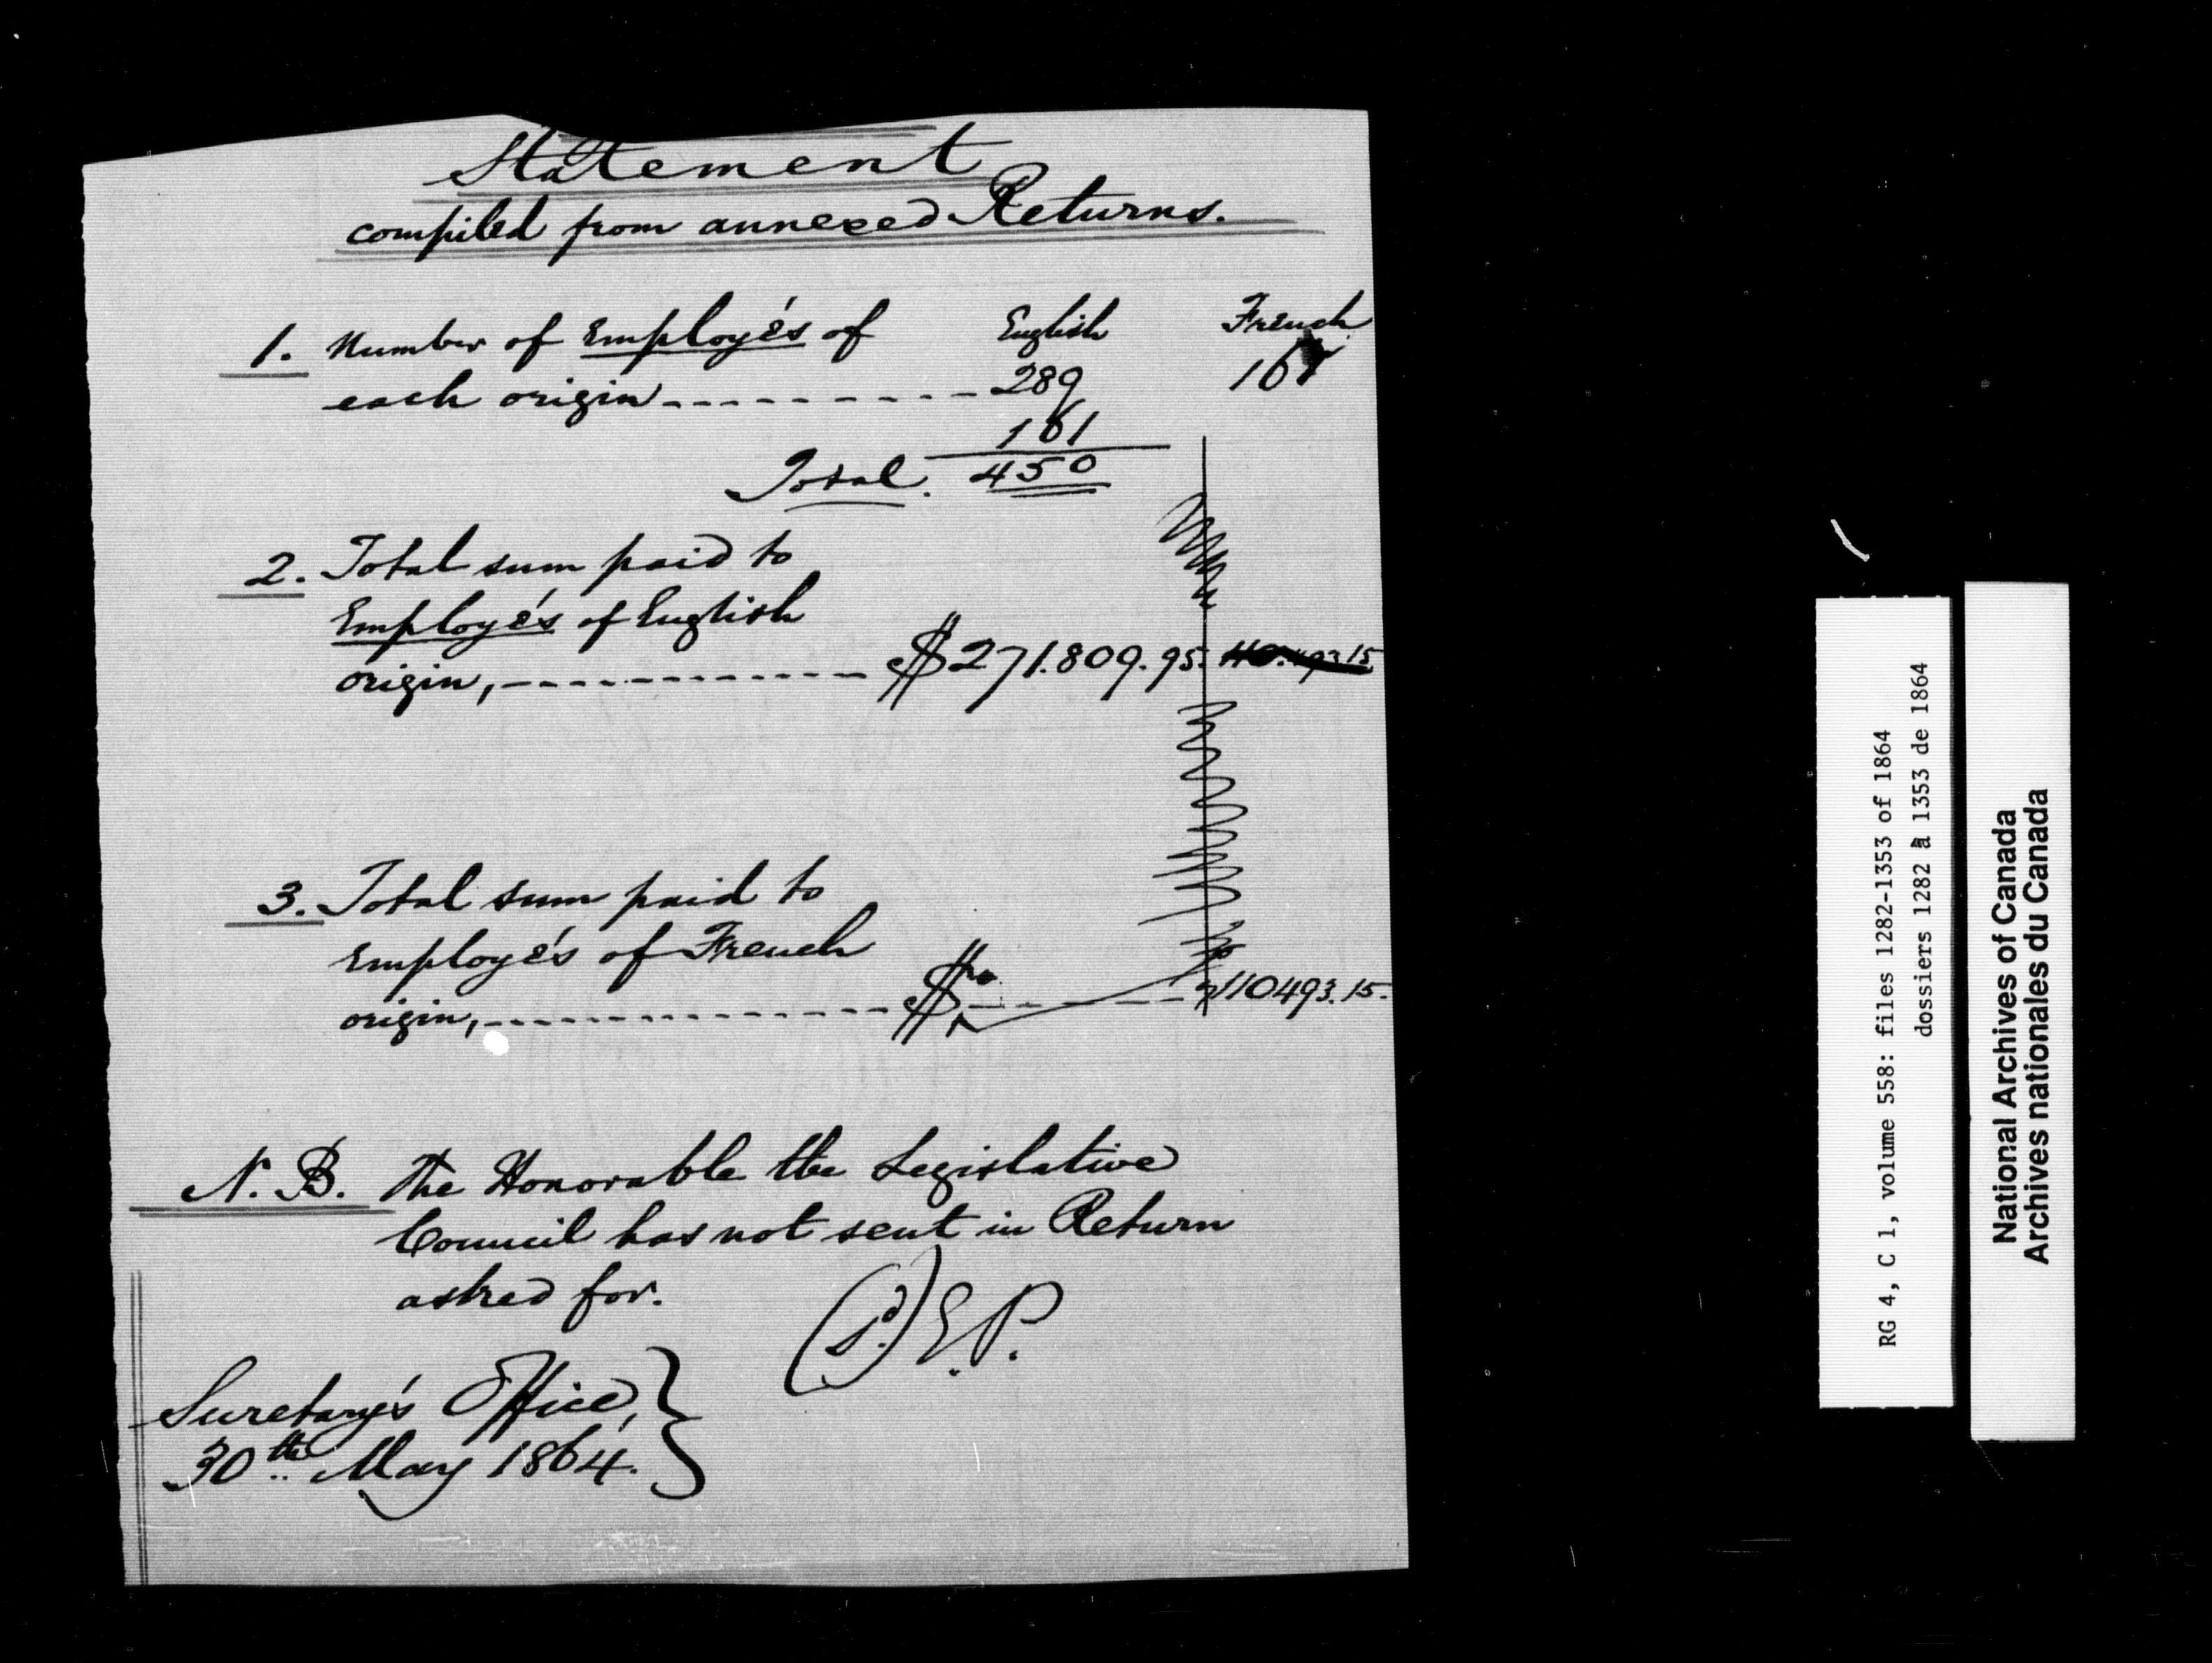 Statement
compiled from annexed Returns.
English French
1. Number of Employés of
each origin---------- 289 161
161
Total. 450
2. Total sum paid to
Employés of English
origin,------------- $271.809.95. 110.493.15
3. Total sum paid to
Employés of French
origin,--------------- $ ------ 110493.15.
N.B. The Honorable the Legislative
Council has not sent in Return
asked for.
(s.d) E.P.
Secretary's Office,
30th May 1864.
RG 4, C 1, volume 558: files 1282-1353 of 1864
dossiers 1282 à 1353 de 1864
National Archives of Canada
Archives nationales du Canada